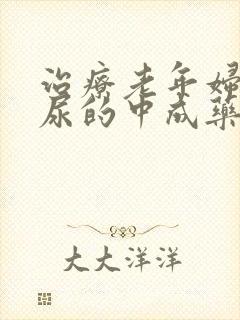 治療老年婦
尿的中成藥
大大洋洋